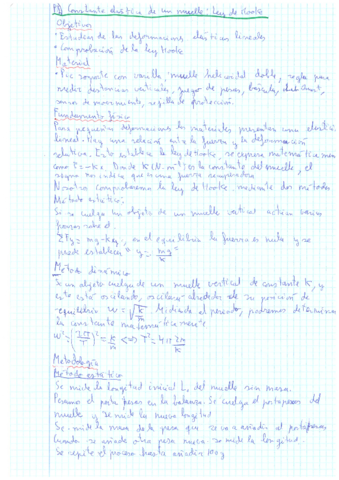 P8 Constante elástica de un muelle: Ley de Hooke
Objetivos
• Estudiar de las deformaciones elásticas lineales
• Comprobación de la ley Hooke
Material
• Pie soporte con varilla, muelle helicoidal doble, regla para
medir distancias verticales, juego de pesas, báscula,
sensor de movimiento, rejilla de protección.
Fundamento físico
Para pequeñas deformaciones los materiales presentan una
lineal. Hay una relación entre la fuerza y la deformación
relativa. Esto establece la ley de Hooke, se expresa
como F=-Kx. Donde K(N·m⁻¹) es la constante del muelle, el
signo nos indica que es una fuerza recuperadora
Nosotros comprobaremos la ley de Hooke mediante dos métodos
Método estático:
Si se cuelga un objeto de un muelle vertical actúan varias
fuerzas sobre él.
ΣFy = mg-Ky, en el equilibrio la fuerza es nula y se
puede establecer y = mg/K
Método dinámico
Si un objeto cuelga de un muelle vertical de constante K, y
este está oscilando, oscilará alrededor de su posición de
equilibrio w = √K/m. Midiendo el periodo, podremos determinar
la constante matemáticamente
W² = (2π/T)² = K/m <=> T² = 4π
Metodología
Método estático
Se mide la longitud inicial L₀ del muelle sin masa.
Ponemos el porta pesas en la balanza. Se cuelga el portapesas del
muelle y se mide la nueva longitud
Se mide la masa de la pesa que se va a añadir al portapesas
Cuando se añade otra pesa nueva se mide la longitud.
Se repite el proceso hasta añadir 100g